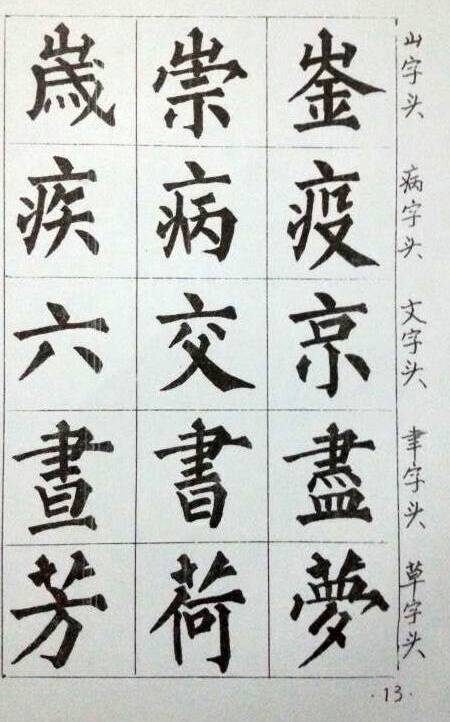 山字头
崟崇嵗
病字头
疫病疾
文字头
京交六
聿字头
盡書晝
草字头
夢荷芳
·13·